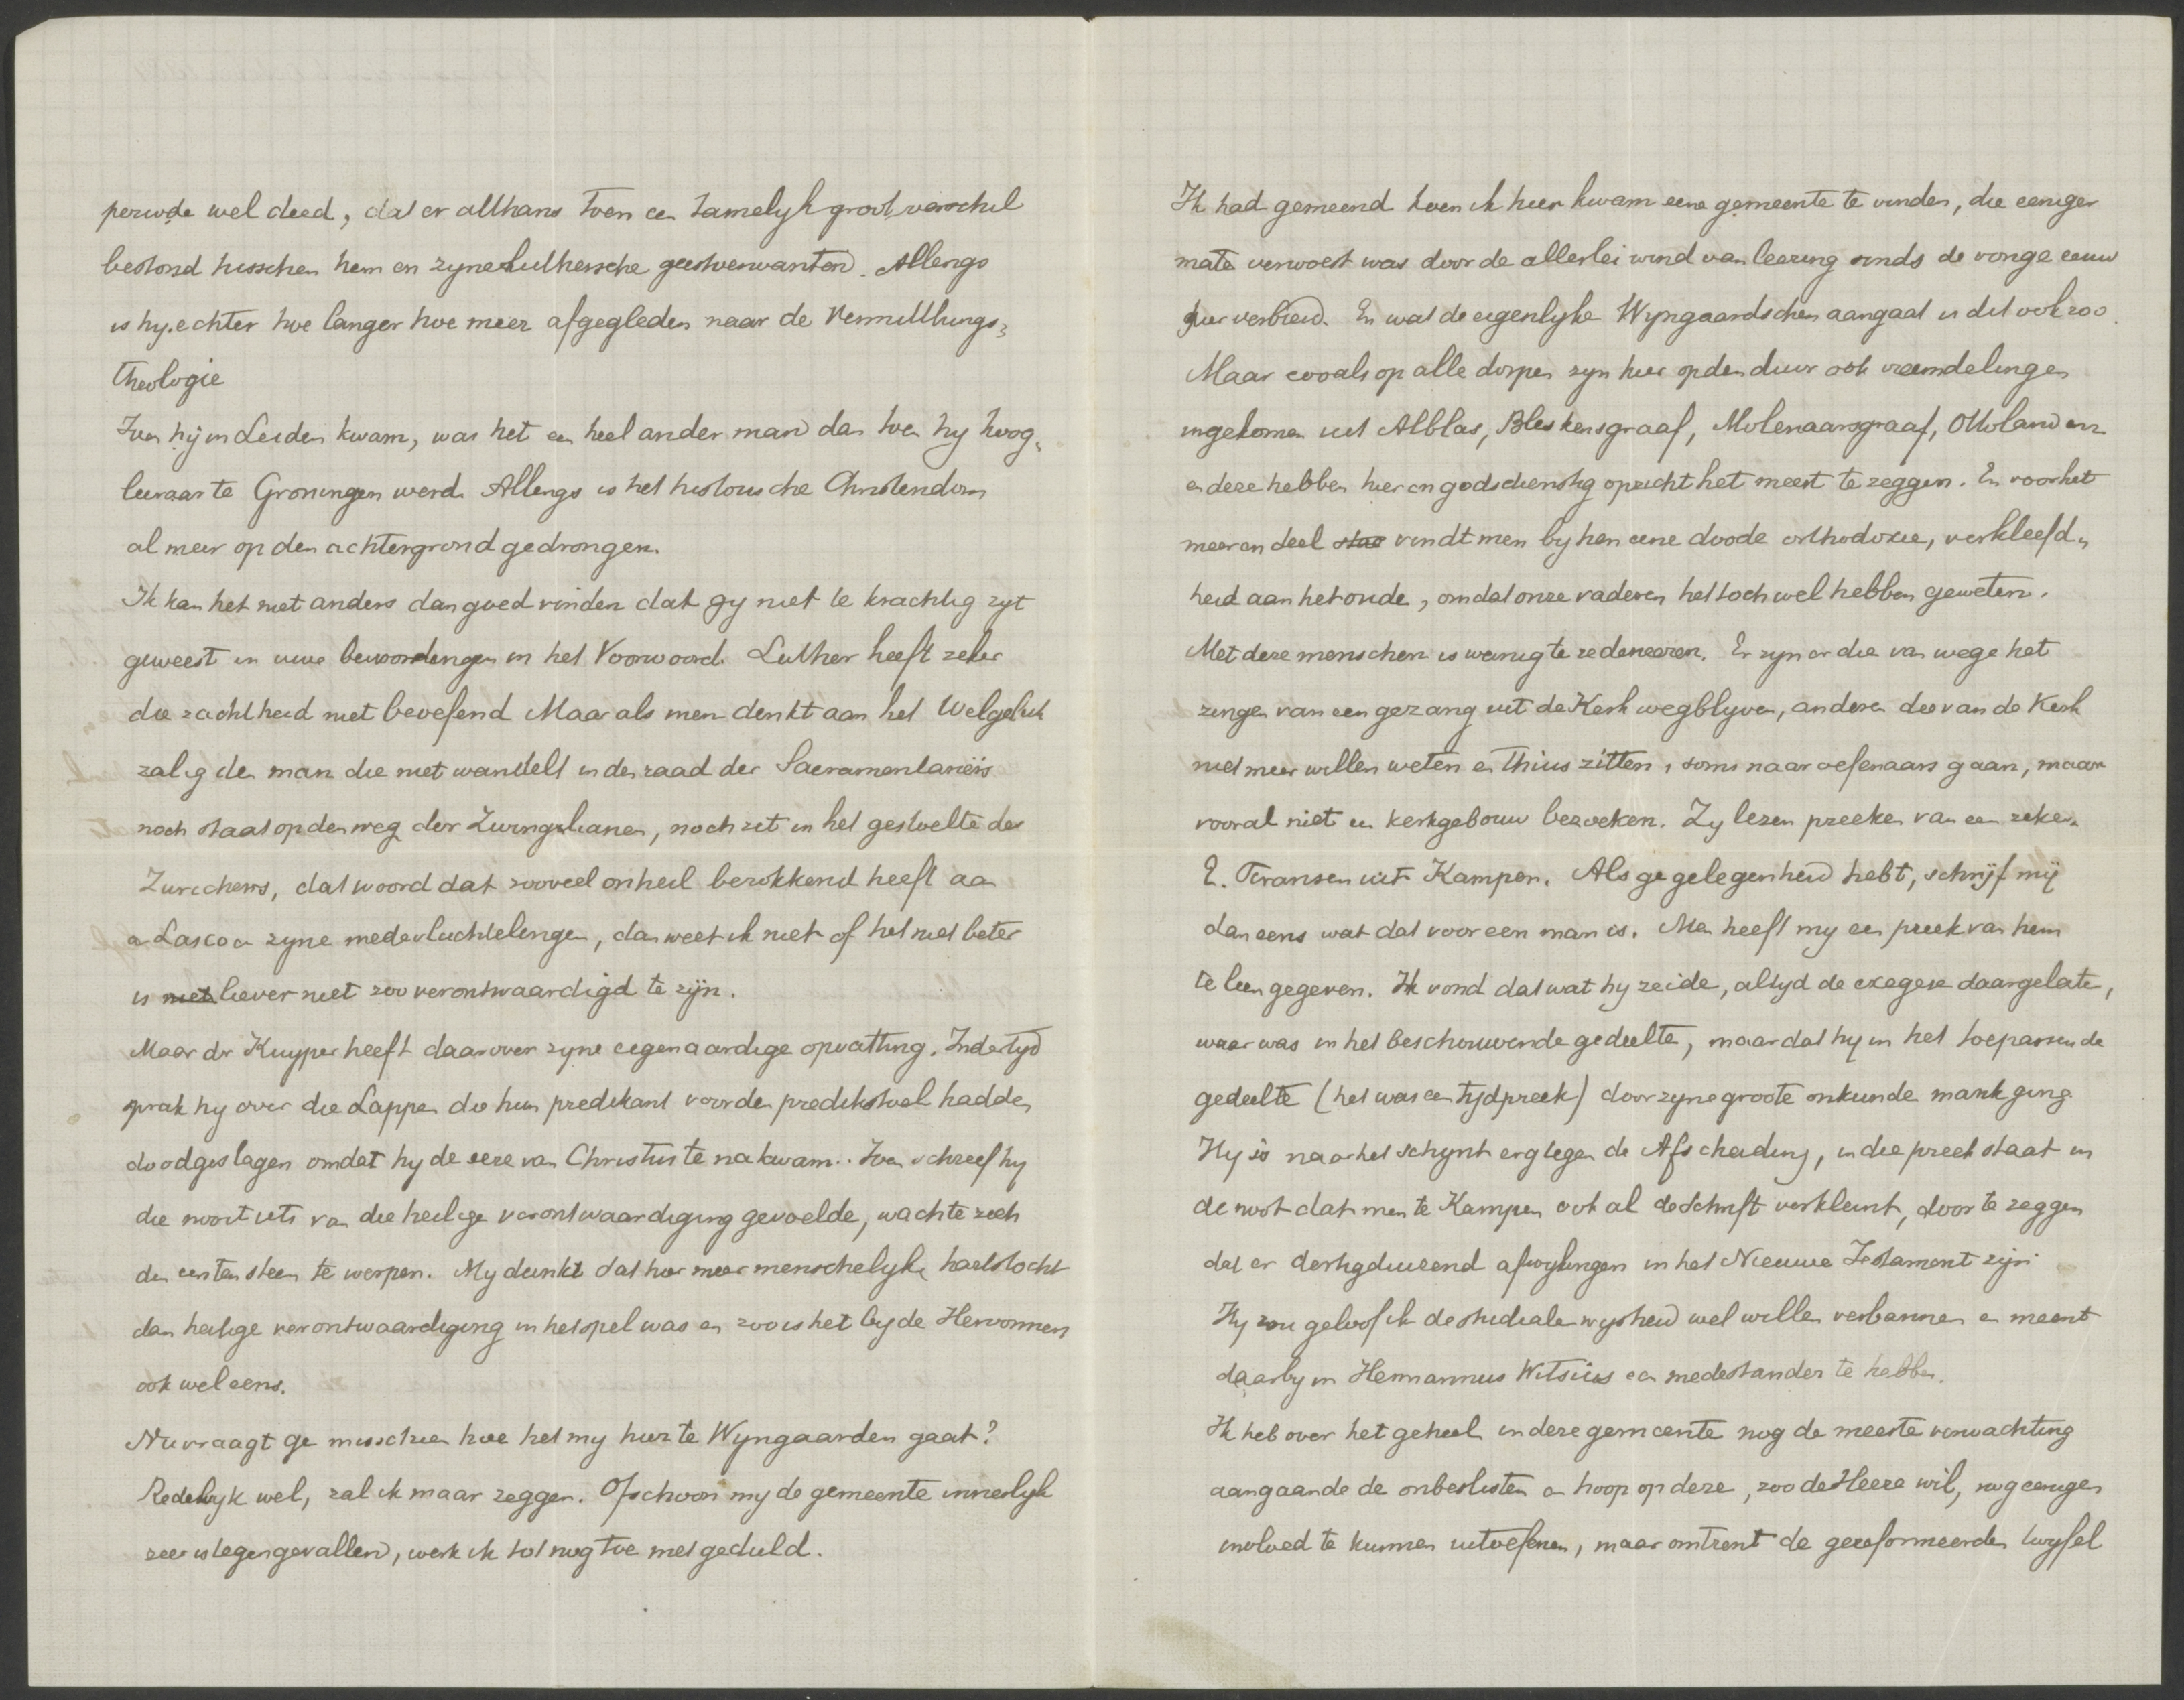 periode wel deed, dat er althans toen een tamelyk groot verschil
bestond tusschen hem en zyne Luthersche geestverwanten. Allengs
is hy echter hoe langer hoe meer afgegleden naar de Vermittlungs-
theologie
Toen hij in Leiden kwam, was het een heel ander man dan toen hy hoog-
leeraar te Groningen werd. Allengs is het historische Christendom
al meer op den achtergrond gedrongen.
Ik kan het niet anders dan goed vinden dat gy niet te krachtig zyt
geweest in uwe bewoordingen in het Voorwoord. Luther heeft zeker
die zachtheid niet beoefend Maar als men denkt aan het Welgeluk
zalig den man die niet wandelt in den raad der Sacramentariërs
noch staat op den weg der Zwinglianen, noch zit in het gestoelte der
Zurichers, dat woord dat zooveel onheil berokkend heeft aan
a Lasco en zyne medevluchtelingen, dan weet ik niet of het niet beter
is niet liever niet zoo verontwaardigd te zijn.
Maar dr Kuyper heeft daarover zyne eigenaardige opvatting. Indertyd
sprak hy over die Lappen die hun predikant voor den predikstoel hadden
doodgeslagen omdat hy de eere van Christus te na kwam.. Toen schreef hy
die nooit iets van die heilige verontwaardiging gevoelde, wachte zich
den eersten steen te werpen. My dunkt dat hier meer menschelyke hartstocht
dan heilige verontwaardiging in het spel was en zoo is het by de Hervormers
ook wel eens.
Nu vraagt ge misschien hoe het my hier te Wyngaarden gaat?
Redelyk wel, zal ik maar zeggen. Ofschoon my de gemeente innerlyk
zeer is tegengevallen, werk ik tot nog toe met geduld.
Ik had gemeend toen ik hier kwam eene gemeente te vinden, die eeniger
mate verwoest was door de allerlei wind van leering sinds de vorige eeuw
hier verbreid. En wat de eigenlyke Wyngaardschen aangaat is dit ook zoo.
Maar zooals op alle dorpen zyn hier op den duur ook vreemdelingen
ingekomen uit Alblas, Bleskensgraaf, Molenaarsgraaf, Ottoland enz
en deze hebben hier in godsdienstig opzicht het meest te zeggen. En voor het
meerendeel vindt men by hen eene doode orthodoxie, verkleefd-
heid aan het oude, omdat onze vaderen het toch wel hebben geweten.
Met deze menschen is weinig te redeneeren. Er zyn er die van wege het
zingen van een gezang uit de Kerk wegblyven, anderen die van de Kerk
niet meer willen weten en thuis zitten, soms naar oefenaars gaan, maar
vooral niet een kerkgebouw bezoeken. Zy lezen preeken van een zeker
E. Fransen uit Kampen. Als ge gelegenheid hebt, schrijf mij
dan eens wat dat voor een man is. Men heeft my een preek van hem
te leen gegeven. Ik vond dat wat hy zeide, altyd de exegese daargelaten,
waar was in het beschouwende gedeelte, maar dat hy in het toepassende
gedeelte (het was een tijdpreek) door zyne groote onkunde mank ging.
Hy is naar het schynt erg tegen de Afscheiding, in die preek staat in
de noot dat men te Kampen ook al de Schrift verkleint, door te zeggen
dat er dertigduizend afwykingen in het Nieuwe Testament zijn.
Hy zou geloof ik de studiale wysheid wel willen verbannen en meent
daarby in Hermannus Witsius een medestander te hebben.
Ik heb over het geheel in deze gemeente nog de meeste verwachting
aangaande de onbeslisten en hoop op deze, zoo de Heere wil, nog eenigen
invloed te kunnen uitoefenen, maar omtrent de gereformeerden twyfel